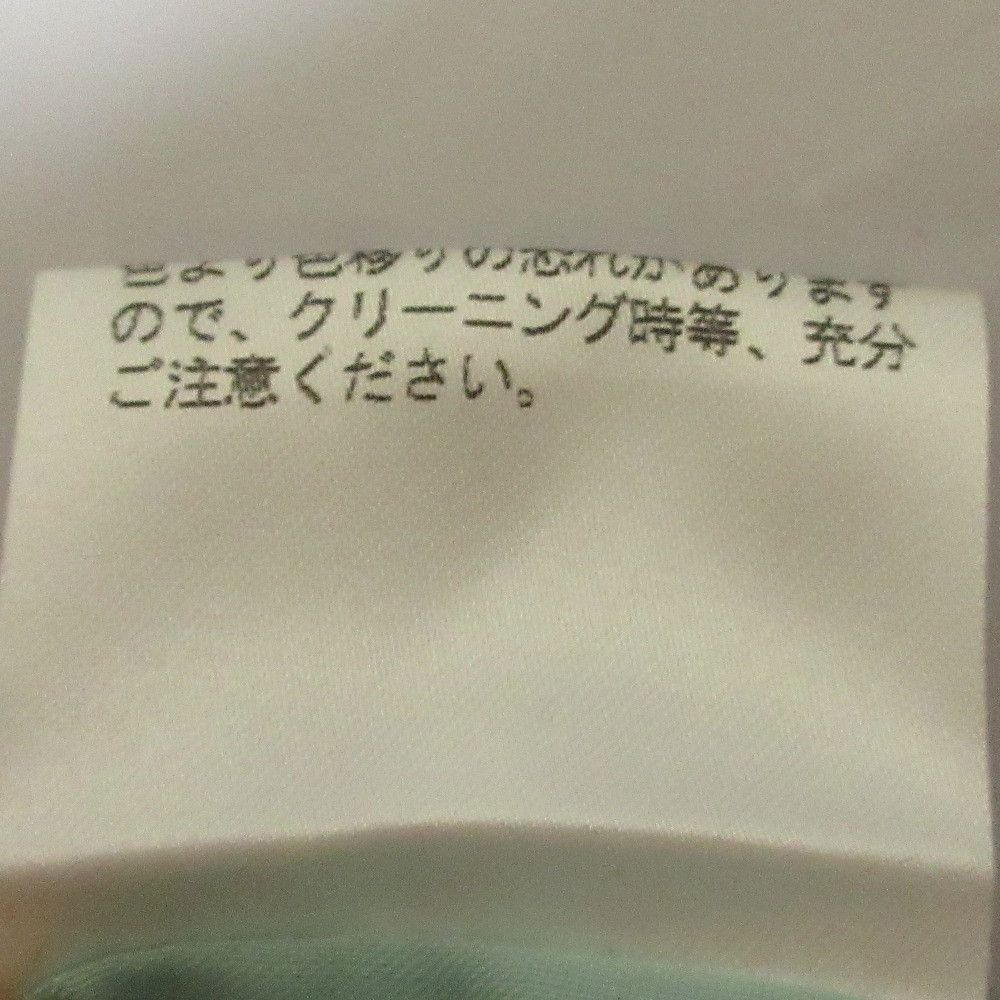 色より色移りの恐れがあります
ので、クリーニング時等、充分
ご注意ください。